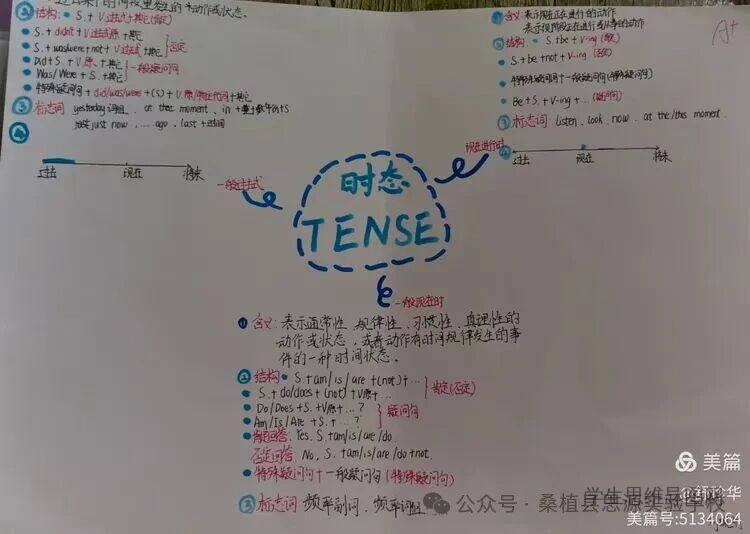 里发生的动作或状态。
② 结构: S. + V过去式 + 其它 (肯定)
S. + didn't + V过去式原 + 其它
S. + was/were + not + V过去式 + 其它 否定
Did + S. + V原. + 其它
Was/Were + S. + 其它 一般疑问句
特殊疑问词 + did/was/were + (S) + V原/ + 其它
③ 标志词 yesterday词组. at that moment. in +
just now ...... ago. last + 时间
④
过去 现在 将来
一般过去式
① 含义: 表示现在正在进行的动作
表示现阶段正在进行或从事的动作
② 结构: S + be + V-ing (肯定)
S + be + not + V-ing (否定)
特殊疑问词 + 一般疑问句 (特殊疑问句)
Be + S. + V-ing + .. (疑问句)
③ 标志词 listen. look. now. at the/this moment.
④
过去 现在 将来
现在进行时
A+
时态
TENSE
一般现在时
① 含义: 表示通常性、规律性、习惯性、真理性的
动作或状态, 或者动作有时间规律发生的事
件的一种时间状态。
② 结构 S. + am/is/are + (not) + ...
S. + do/does + (not) + V原 + ... 肯定(否定)
Do/Does + S. + V原 + ... ?
Am/Is/Are + S. + ... ? 疑问句
肯定回答: Yes, S. + am/is/are/do.
否定回答: No, S. + am/is/are/do + not.
特殊疑问句 + 一般疑问句 (特殊疑问句)
③ 标志词 频率副词. 频率词组
美篇
学生思维导图
公众号 · 桑植县思源实验学校
美篇号:5134064